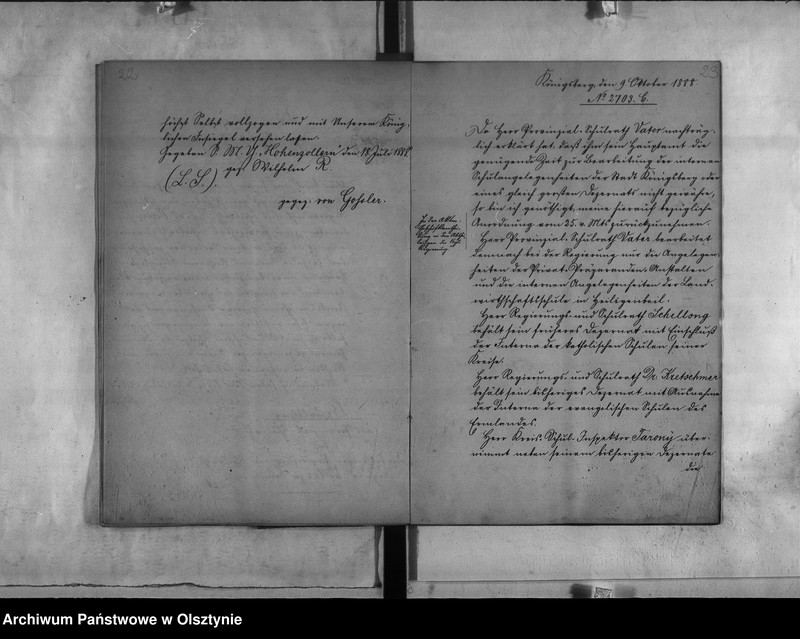 22
höchst Selbst vollzogen und mit Unserem König-
lichen Insiegel versehen lassen.
Gegeben S. M. Y. „Hohenzollern“ den 18 Juli 1888
(L. S.) gez. Wilhelm R.
gegez. von Goßler.
23
Königsberg, den 9 Oktober 1888
No 2703. C.
Da Herr Provinzial-Schulrath Vater nachträg-
lich erklärt hat, daß ihm sein Hauptamt die
genügende Zeit zur Bearbeitung der internen
Schulangelegenheiten der Stadt Königsberg oder
eines gleich großen Dezernats nicht gewähre,
so bin ich genöthigt, meine hierauf bezügliche
Anordnung vom 25. v. Mts zurückzunehmen.
Herr Provinzial-Schulrath Vater bearbeitet
demnach bei der Regierung nur die Angelegen-
heiten der Privat-Präparanden-Anstalten
und die internen Angelegenheiten der Land-
wirthschaftsschule in Heiligenbeil.
Herr Regierungs- und Schulrath Schellong
behält sein früheres Dezernat mit Einschluß
der Interna der katholischen Schulen seiner
Kreise.
Herr Regierungs- und Schulrath Dr. Kretschmer
behält sein bisheriges Dezernat mit Ausnahme
der Interna der evangelischen Schulen des
Ermlandes.
Herr Kreis-Schul-Inspektor Tarony über-
nimmt neben seinem bisherigen Dezernate
die
Zu den Akten
Regierung
Archiwum Państwowe w Olsztynie